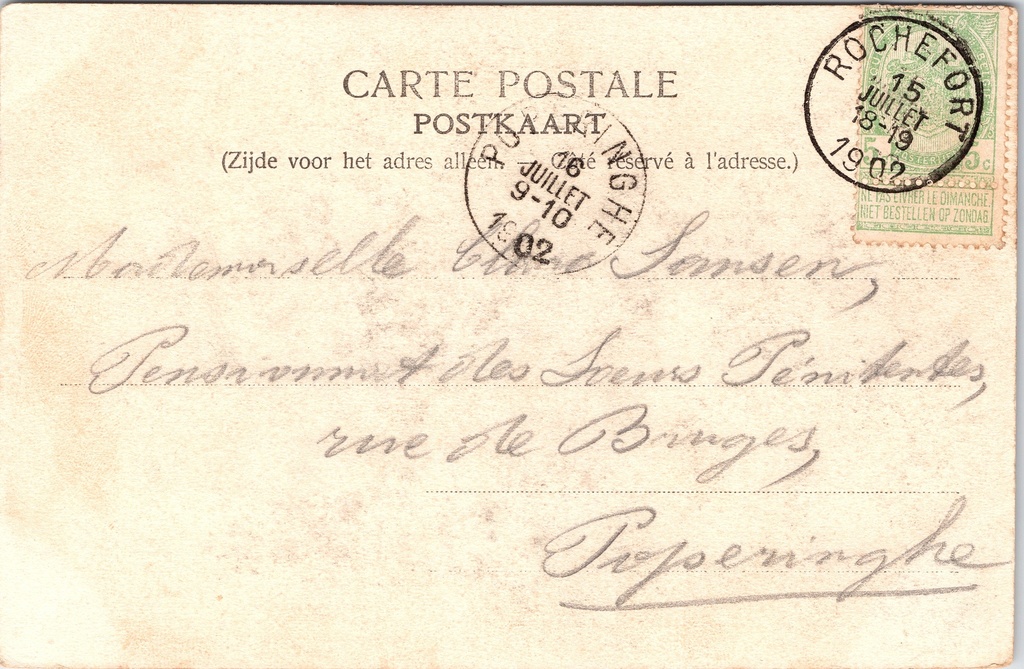 CARTE POSTALE
POSTKAART
(Zijde voor het adres alleen. — Côté réservé à l'adresse.)
ROCHEFORT
15
JUILLET
18-19
1902
5 c
NE PAS LIVRER LE DIMANCHE
NIET BESTELLEN OP ZONDAG
POPERINGHE
16
JUILLET
9-10
1902
Mademoiselle Sansen,
Pensionnat des Soeurs Pénitentes,
rue de Bruges,
Poperinghe